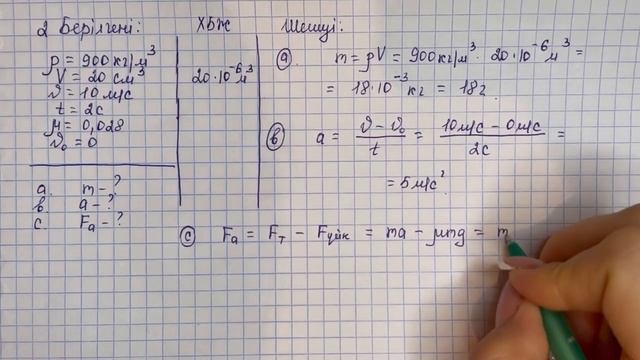 2 Берілгені:
ρ = 900 кг/м³
V = 20 см³
υ = 10 м/с
t = 2с
μ = 0,028
υ₀ = 0
a. m - ?
в. a - ?
с. Fa - ?
ХБЖ
20·10⁻⁶ м³
Шешуі:
(a) m = ρV = 900 кг/м³ · 20·10⁻⁶ м³ =
= 18·10⁻³ кг = 18г.
(в) a = (υ - υ₀)/t = (10 м/с - 0 м/с)/2с =
= 5 м/с².
(с) Fa = Fт - Fүйк = ma - μmg = m